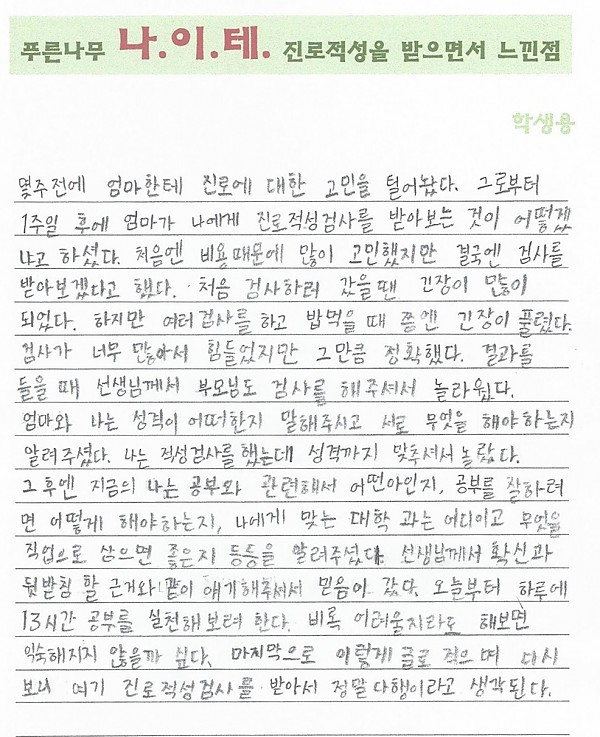 푸른나무 나.이.테. 진로적성을 받으면서 느낀점
학생용
몇주전에 엄마한테 진로에 대한 고민을 털어놨다. 그로부터
1주일 후에 엄마가 나에게 진로적성검사를 받아보는 것이 어떻겠
냐고 하셨다. 처음엔 비용때문에 많이 고민했지만 결국엔 검사를
받아보겠다고 했다. 처음 검사하러 갔을땐 긴장이 많이
되었다. 하지만 여러검사를 하고 밥먹을 때 쯤엔 긴장이 풀렸다.
검사가 너무 많아서 힘들었지만 그만큼 정확했다. 결과를
들을 때 선생님께서 부모님도 검사를 해주셔서 놀라웠다.
엄마와 나는 성격이 어떠한지 말해주시고 서로 무엇을 해야하는지
알려주셨다. 나는 적성검사를 했는데 성격까지 맞추셔서 놀랐다.
그후엔 지금의 나는 공부와 관련해서 어떤아인지, 공부를 잘하려
면 어떻게 해야하는지, 나에게 맞는 대학 과는 어디이고 무엇을
직업으로 삼으면 좋은지 등등을 알려주셨다. 선생님께서 확신과
뒷받침 할 근거와 같이 얘기해주셔서 믿음이 갔다. 오늘부터 하루에
13시간 공부를 실천해보려 한다. 비록 어려울지라도 해보면
익숙해지지 않을까 싶다. 마지막으로 이렇게 글로 적으며 다시
보니 여기 진로적성검사를 받아서 정말 다행이라고 생각된다.